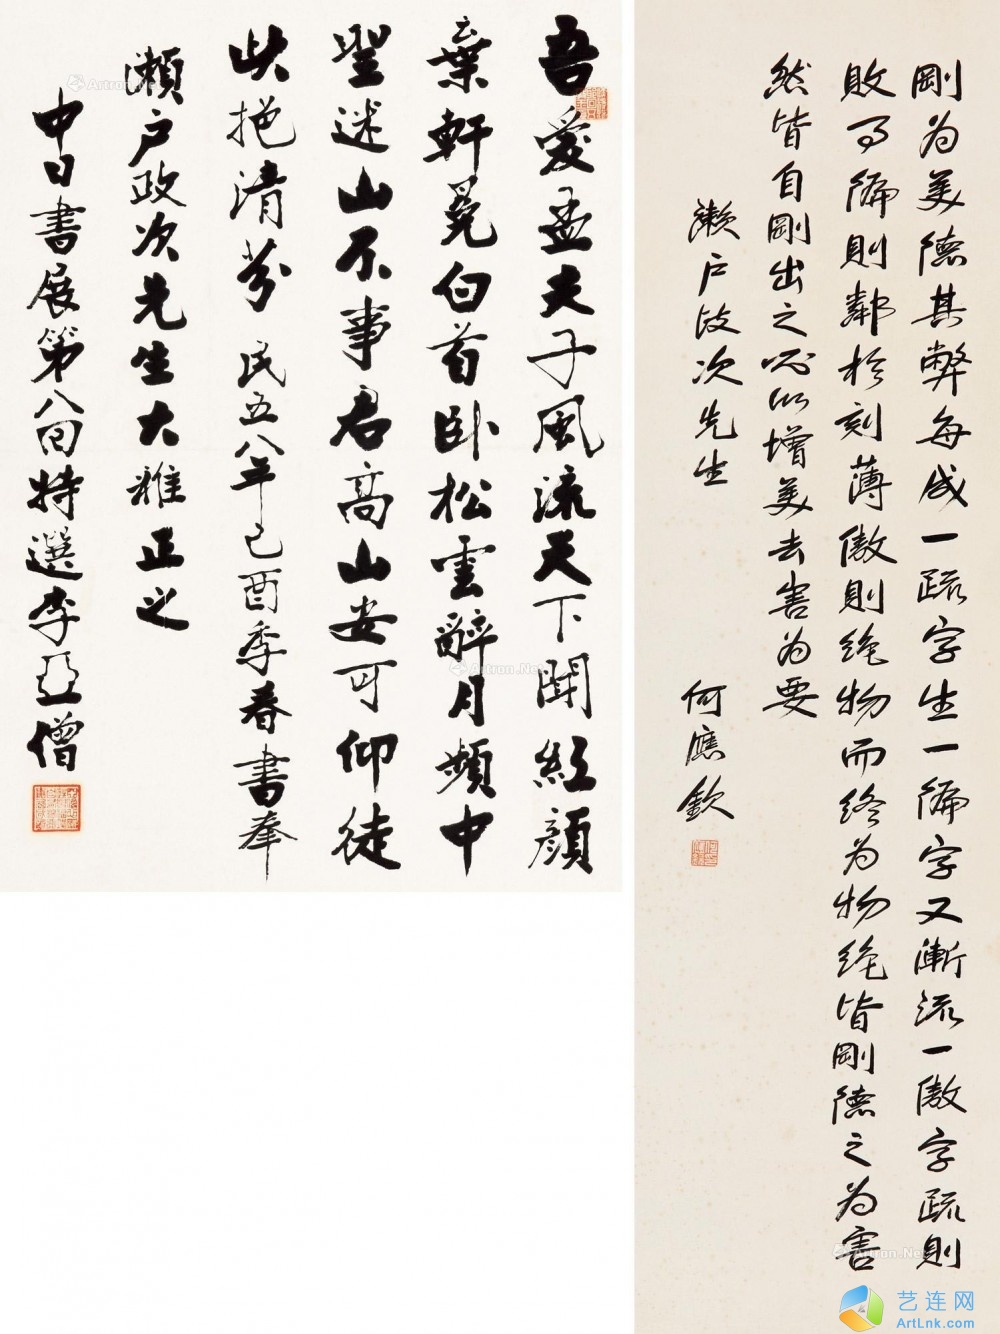 剛為美德其弊每成一疏字生一偏字又漸流一傲字疏則
敗事偏則鄰於刻薄傲則絶物而終為物絶皆剛德之為害
然皆自剛出之必以增美去害為要
瀨户政次先生 何應欽
吾愛孟夫子風流天下聞紅顏
棄軒冕白首臥松雲醉月頻中
聖迷山不事君高山安可仰徒
此挹清芬 民五八年己酉季春書奉
瀨户政次先生大雅正之
中日書展第八回特選李亞僧
Artron.Net
Artron.Net
Artron.Net
艺连网
ArtLnk.com